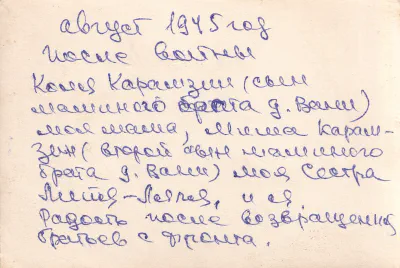 август 1945 год
после войны
Коля Карамзин (сын
маминого брата д. Вани)
моя мама, Миша Карам-
зин (второй сын маминого
брата д. Вани) моя сестра
и я.
Радость после возвращения
братьев с фронта.